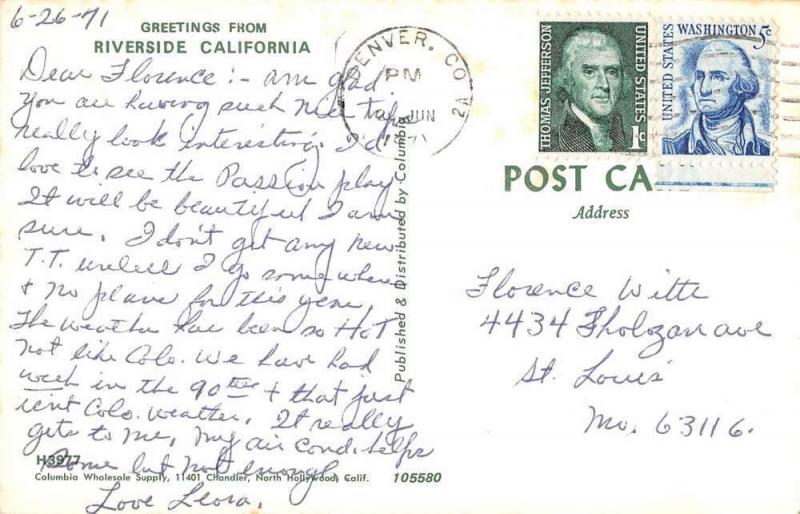 6-26-71
GREETINGS FROM
RIVERSIDE CALIFORNIA
Dear Florence:- am glad
You are having such nice trip
really look interesting. I'd
love to see the Passion play
It will be beautiful I am
sure. I don't get any new
T.T. unless I go somewhere
& no plans for this year.
The weather has been so Hot
not like Colo. We have had
week in the 90ties & that just
isnt Colo. weather. It really
gets to me, my air cond. helps
some but not enough
Love Leora.
H3977
Columbia Wholesale Supply, 11401 Chandler, North Hollywood, Calif.
105580
Published & Distributed by Columbia
DENVER, CO
PM
JUN
THOMAS JEFFERSON
UNITED STATES
1c
UNITED STATES
WASHINGTON 5c
POST CA
Address
Florence Witte
4434 Tholozan ave
St. Louis
Mo. 63116.